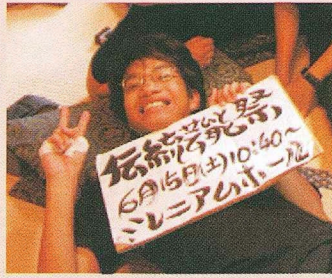 伝統芸能祭
6月15日(土)10:40~
ミレニアムホール